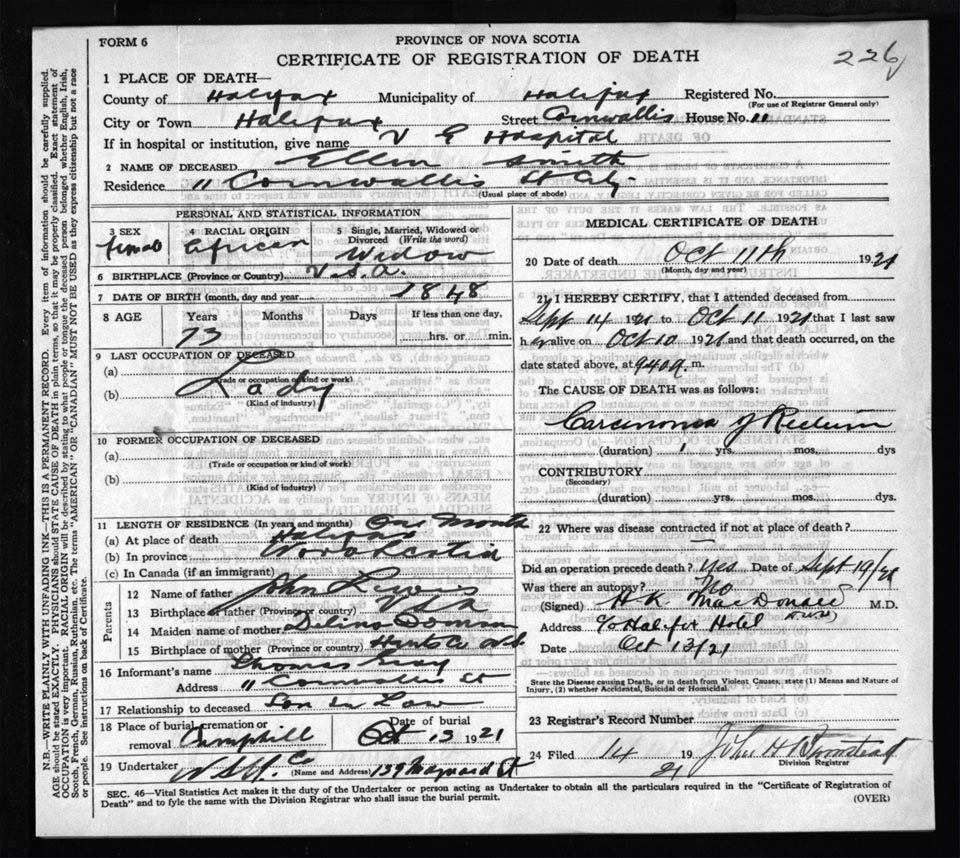 FORM 6
PROVINCE OF NOVA SCOTIA
CERTIFICATE OF REGISTRATION OF DEATH
226
1 PLACE OF DEATH—
County of Halifax Municipality of Halifax Registered No.
(For use of Registrar General only)
City or Town Halifax Street Cornwallis House No. 11
If in hospital or institution, give name V G Hospital
2 NAME OF DECEASED Ellen Smith
Residence 11 Cornwallis St City
(Usual place of abode)
PERSONAL AND STATISTICAL INFORMATION
3 SEX 4 RACIAL ORIGIN 5 Single, Married, Widowed or Divorced (Write the word)
female African Widow
6 BIRTHPLACE (Province or Country) U.S.A.
7 DATE OF BIRTH (month, day and year) 1848
8 AGE Years Months Days If less than one day,
73 hrs. or min.
9 LAST OCCUPATION OF DECEASED
(a)
(Trade or occupation or kind of work)
(b) Lady
(Kind of industry)
10 FORMER OCCUPATION OF DECEASED
(a)
(Trade or occupation or kind of work)
(b)
(Kind of industry)
11 LENGTH OF RESIDENCE (In years and months) One Month
(a) At place of death Halifax
(b) In province Nova Scotia
(c) In Canada (if an immigrant)
Parents
12 Name of father John Lewis
13 Birthplace of father (Province or country)
14 Maiden name of mother
15 Birthplace of mother (Province or country) Hants Co
16 Informant's name Thomas Gray
Address 11 Cornwallis St
17 Relationship to deceased Son in Law
18 Place of burial, cremation or removal Camphill Date of burial Oct 13 1921
19 Undertaker (Name and Address) 139 Maynard St
MEDICAL CERTIFICATE OF DEATH
20 Date of death Oct 11th 1921
(Month, day and year)
21 I HEREBY CERTIFY, that I attended deceased from
Sept 14 1921 to Oct 11 1921 that I last saw
her alive on Oct 10 1921 and that death occurred, on
date stated above, at 940a. m.
The CAUSE OF DEATH was as follows:
Carcinoma of Rectum
(duration) 1 yrs. mos. dys
CONTRIBUTORY
(Secondary)
(duration) yrs. mos. dys
22 Where was disease contracted if not at place of death?
—
Did an operation precede death? Yes Date of Sept 19/21
Was there an autopsy? No
(Signed) H.K. MacDonald M.D.
Address c/o Halifax Hotel
Date Oct 13/21
State the Disease causing Death, or in death from Violent Causes, state (1) Means and Nature of
Injury, (2) whether Accidental, Suicidal or Homicidal.
23 Registrar's Record Number
24 Filed 14 19 21
Division Registrar
SEC. 46—Vital Statistics Act makes it the duty of the Undertaker or person acting as Undertaker to obtain all the particulars required in the "Certificate of Registration of
Death" and to fyle the same with the Division Registrar who shall issue the burial permit.
(OVER)
N.B.—WRITE PLAINLY WITH UNFADING INK—THIS IS A PERMANENT RECORD. Every item of information should be carefully supplied.
AGE should be stated EXACTLY. PHYSICIANS should STATE CAUSE OF DEATH in plain terms, so that it may be properly classified. Exact statement of
OCCUPATION is very important. RACIAL ORIGIN will be described by stating to what people or tongue the deceased person belonged whether English, Irish,
Scotch, French, German, Russian, Ruthenian, etc. The terms "AMERICAN" OR "CANADIAN" MUST NOT BE USED as they express citizenship but not a race
or people. See instructions on back of Certificate.